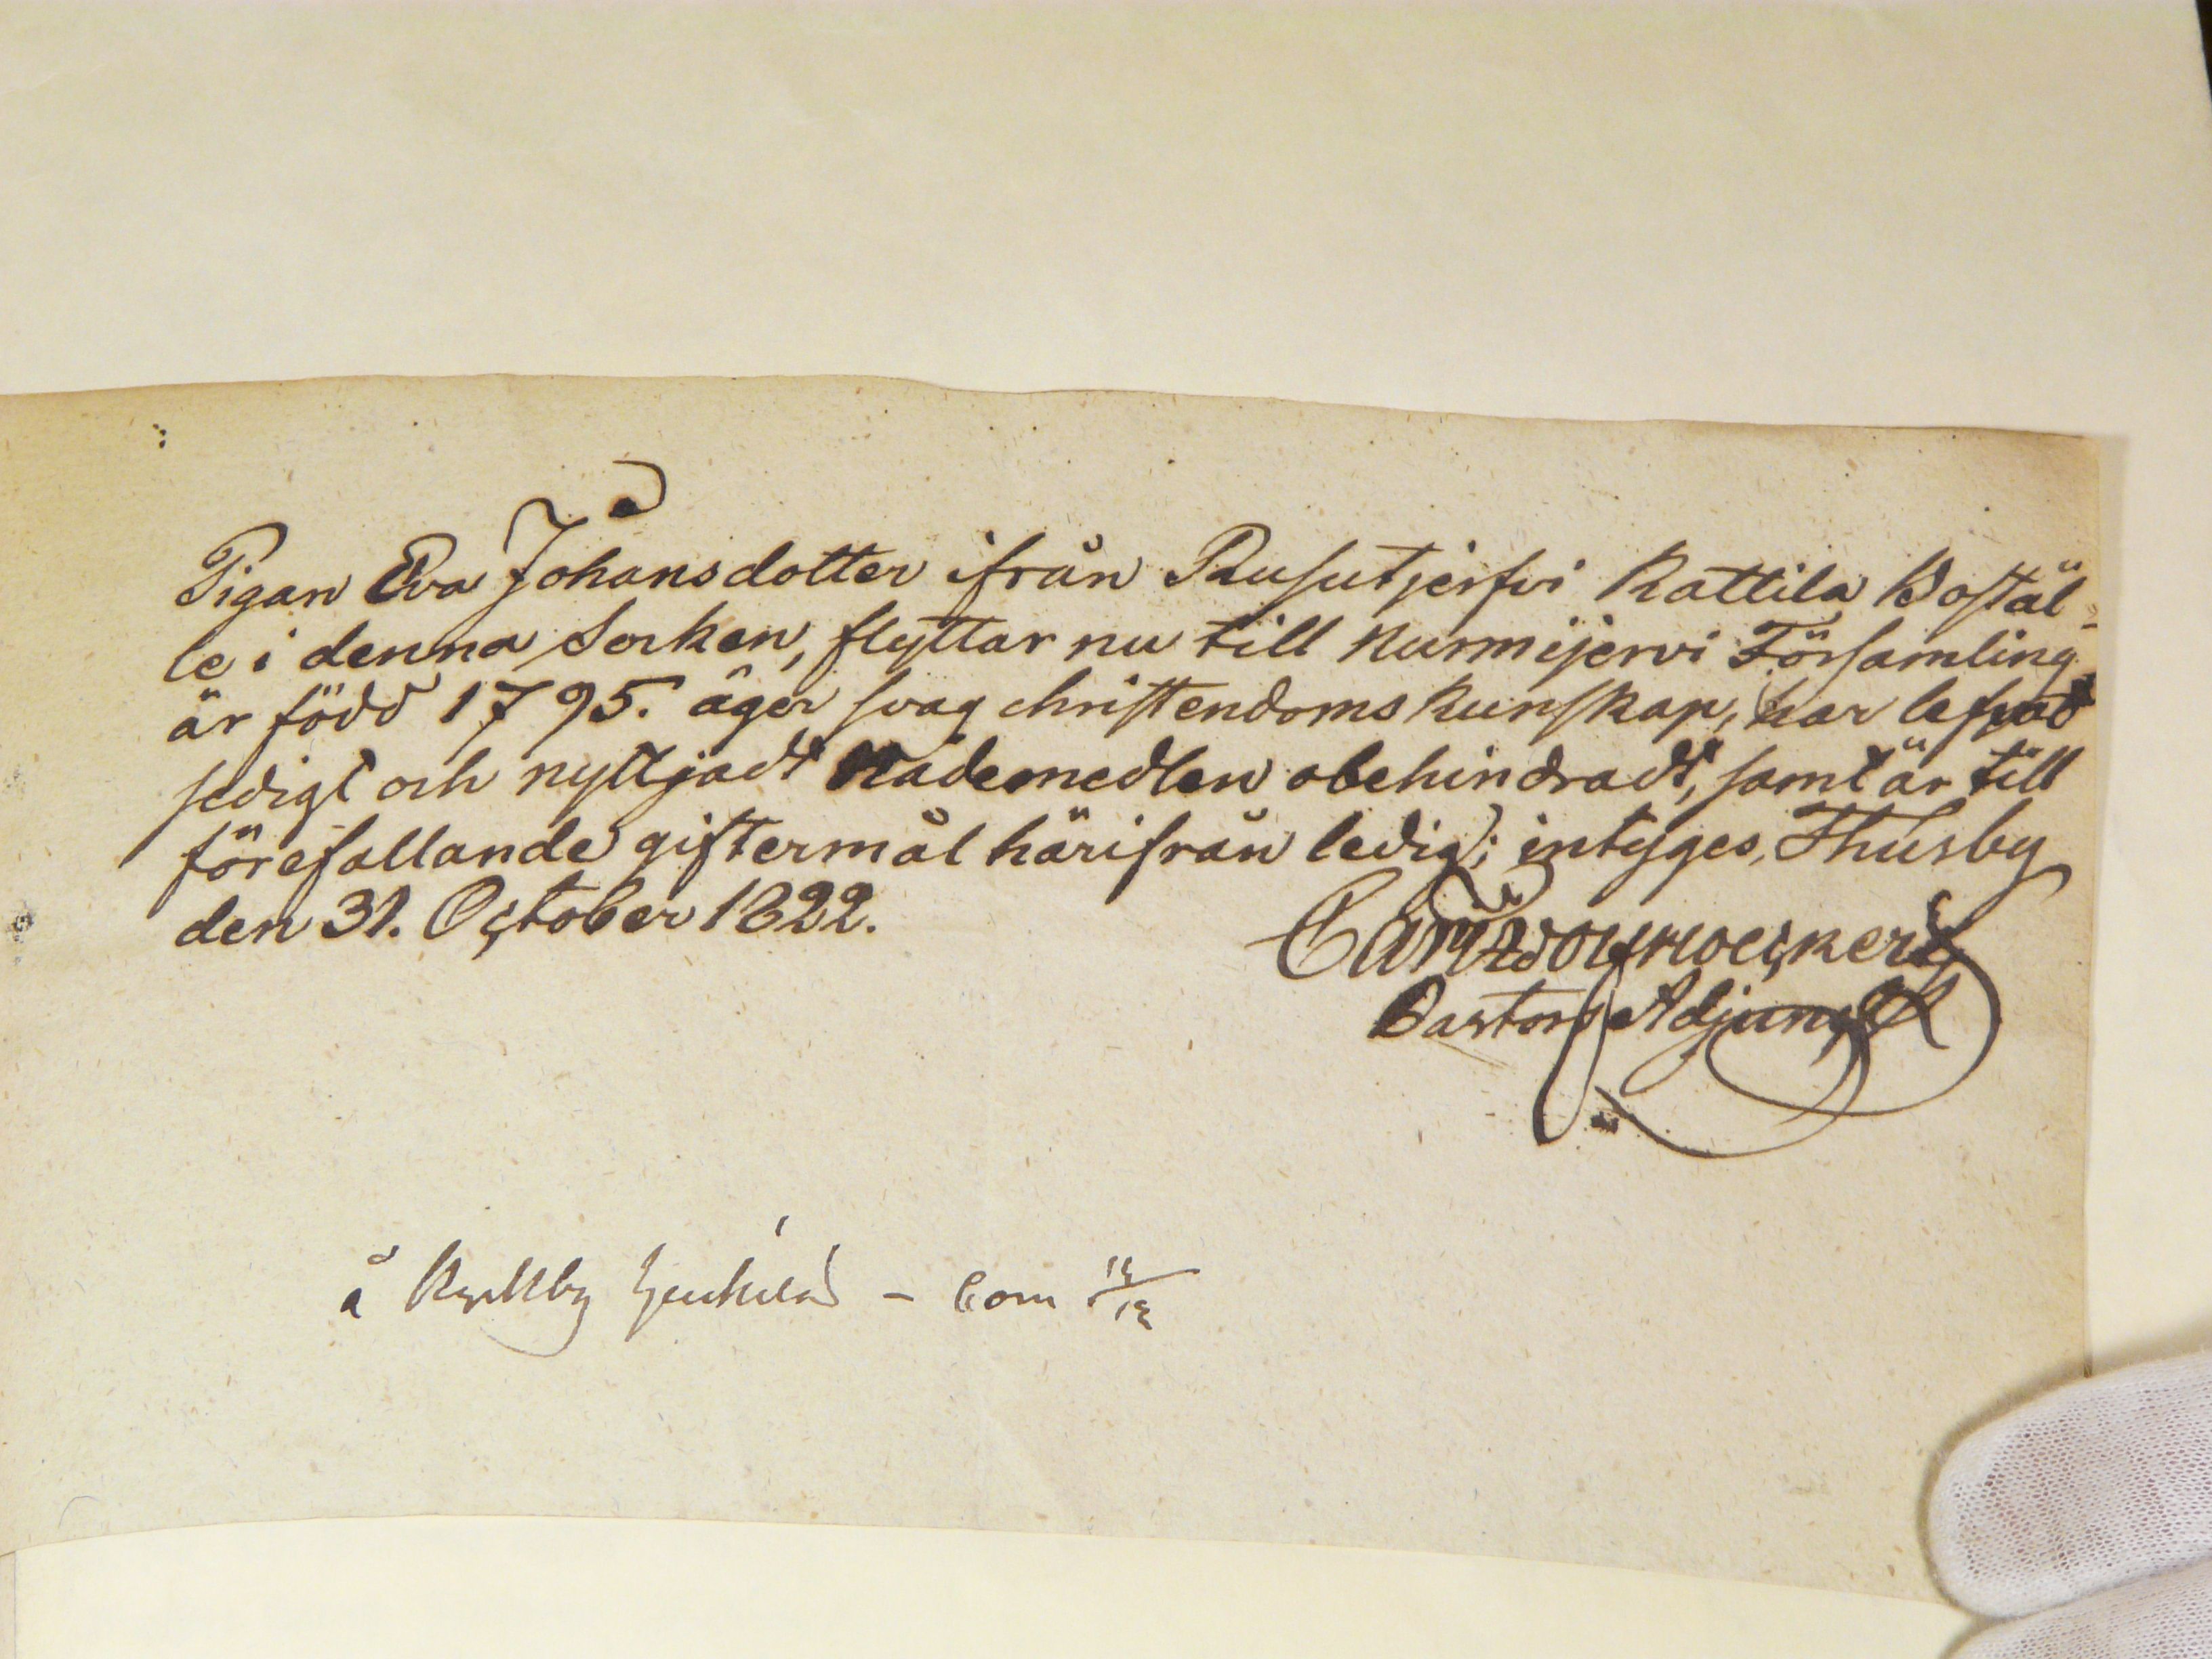 Pigan Eva Johansdotter ifrån Rusutjerfvi Kattila Bostäl-
le i denna Socken, flyttar nu till Nurmijervi Församling
är född 1795. äger svag christendoms kunskap, har lefvat
sedigt och nyttjadt Nådemedlen obehindradt, samt är till
förefallande giftermål härifrån ledig; intyges, Thusby
den 31. October 1822.
Pastors Adjunct
å Kyrkby - Com